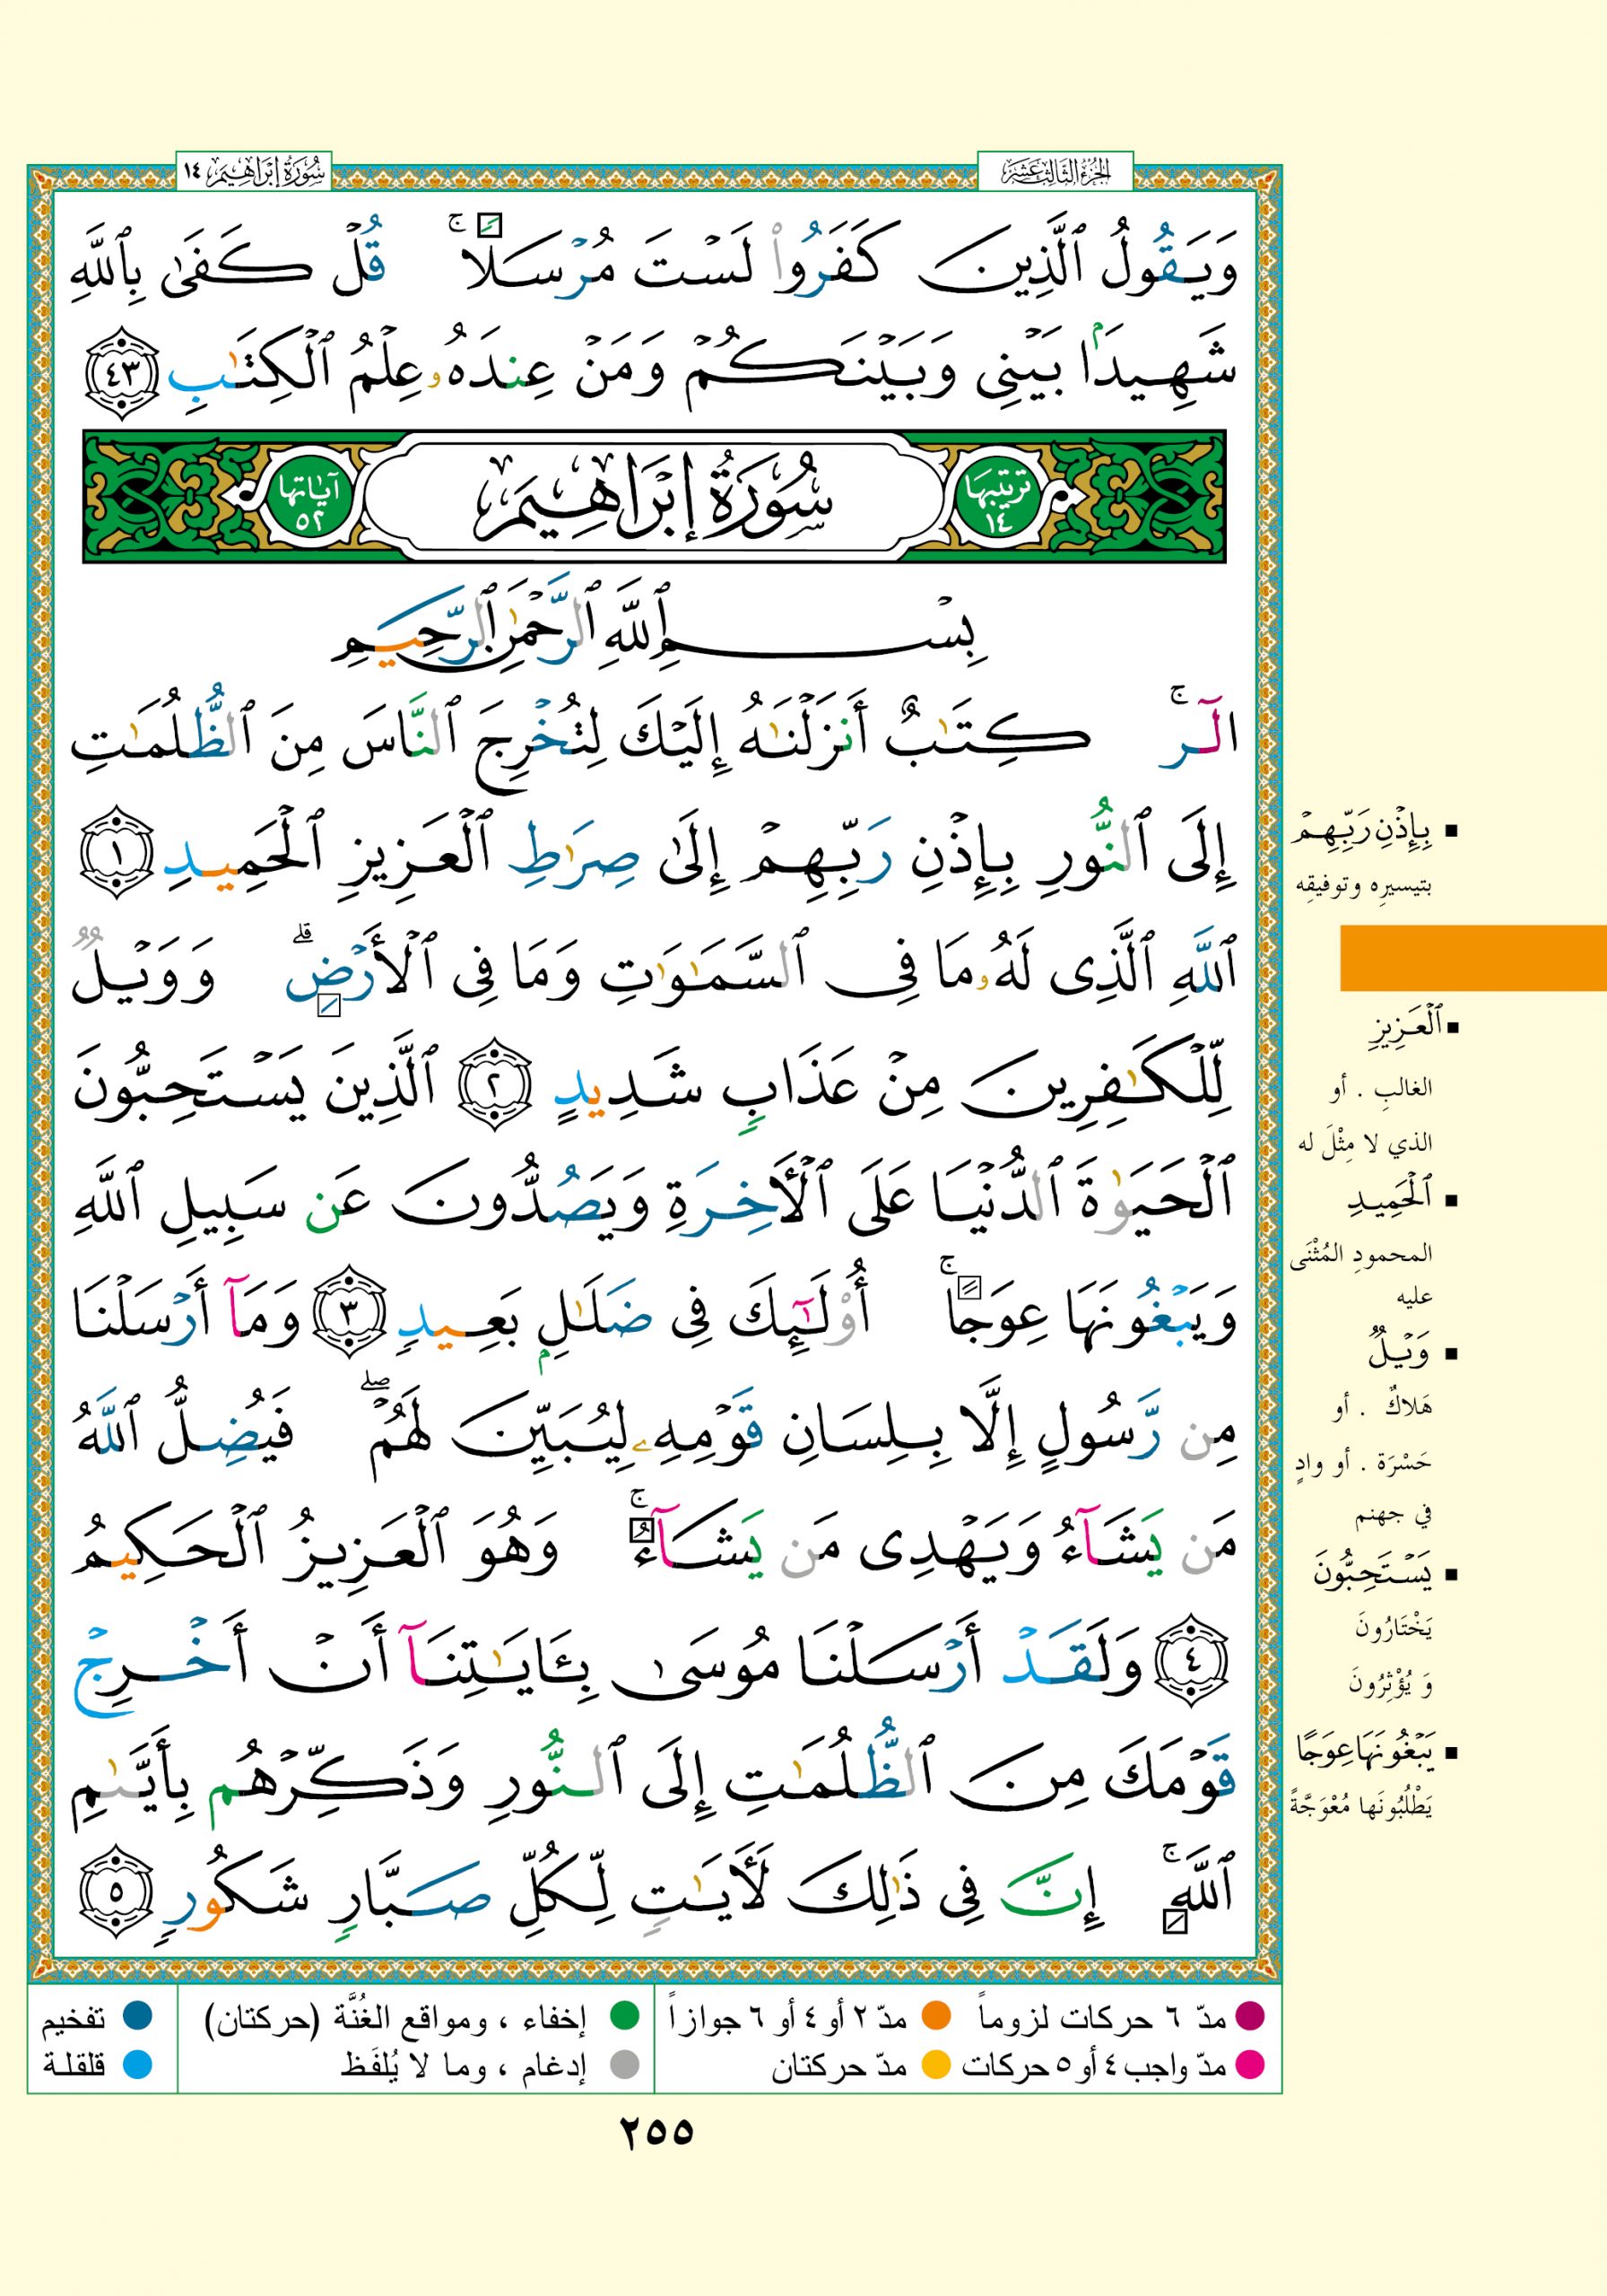 الجزء الثالث عشر
سورة إبراهيم ١٤
وَيَقُولُ ٱلَّذِينَ كَفَرُوا۟ لَسْتَ مُرْسَلًا ۚ قُلْ كَفَىٰ بِٱللَّهِ
شَهِيدًۢا بَيْنِى وَبَيْنَكُمْ وَمَنْ عِندَهُۥ عِلْمُ ٱلْكِتَٰبِ ٤٣
ترتيبها ١٤
سُورَةُ إِبْرَاهِيمَ
آياتها ٥٢
بِسْمِ ٱللَّهِ ٱلرَّحْمَٰنِ ٱلرَّحِيمِ
الٓر ۚ كِتَٰبٌ أَنزَلْنَٰهُ إِلَيْكَ لِتُخْرِجَ ٱلنَّاسَ مِنَ ٱلظُّلُمَٰتِ
إِلَى ٱلنُّورِ بِإِذْنِ رَبِّهِمْ إِلَىٰ صِرَٰطِ ٱلْعَزِيزِ ٱلْحَمِيدِ ١
ٱللَّهِ ٱلَّذِى لَهُۥ مَا فِى ٱلسَّمَٰوَٰتِ وَمَا فِى ٱلْأَرْضِ ۗ وَوَيْلٌ
لِّلْكَٰفِرِينَ مِنْ عَذَابٍ شَدِيدٍ ٢ ٱلَّذِينَ يَسْتَحِبُّونَ
ٱلْحَيَوٰةَ ٱلدُّنْيَا عَلَى ٱلْأَخِرَةِ وَيَصُدُّونَ عَن سَبِيلِ ٱللَّهِ
وَيَبْغُونَهَا عِوَجًا ۚ أُو۟لَٰٓئِكَ فِى ضَلَٰلٍۭ بَعِيدٍ ٣ وَمَآ أَرْسَلْنَا
مِن رَّسُولٍ إِلَّا بِلِسَانِ قَوْمِهِۦ لِيُبَيِّنَ لَهُمْ ۖ فَيُضِلُّ ٱللَّهُ
مَن يَشَآءُ وَيَهْدِى مَن يَشَآءُ ۚ وَهُوَ ٱلْعَزِيزُ ٱلْحَكِيمُ
٤ وَلَقَدْ أَرْسَلْنَا مُوسَىٰ بِـَٔايَٰتِنَآ أَنْ أَخْرِجْ
قَوْمَكَ مِنَ ٱلظُّلُمَٰتِ إِلَى ٱلنُّورِ وَذَكِّرْهُم بِأَيَّىٰمِ
ٱللَّهِ ۚ إِنَّ فِى ذَٰلِكَ لَأَيَٰتٍ لِّكُلِّ صَبَّارٍ شَكُورٍ ٥
▪ بِإِذْنِ رَبِّهِمْ
بتيسيرِه وتوفيقِه
▪ ٱلْعَزِيزِ
الغالبِ . أو
الذي لا مِثْلَ له
▪ ٱلْحَمِيدِ
المحمودِ المُثْنَى
عليه
▪ وَيْلٌ
هَلاكٌ . أو
حَسْرَة . أو وادٍ
في جهنم
▪ يَسْتَحِبُّونَ
يَخْتَارُونَ
وَ يُؤْثِرُونَ
▪ يَبْغُونَهَا عِوَجًا
يَطْلُبُونَها مُعْوَجَّةً
مدّ ٦ حركات لزوماً
مدّ ٢ أو ٤ أو ٦ جوازاً
مدّ واجب ٤ أو ٥ حركات
مدّ حركتان
إخفاء ، ومواقع الغُنَّة (حركتان)
إدغام ، وما لا يُلفَظ
تفخيم
قلقلة
٢٥٥